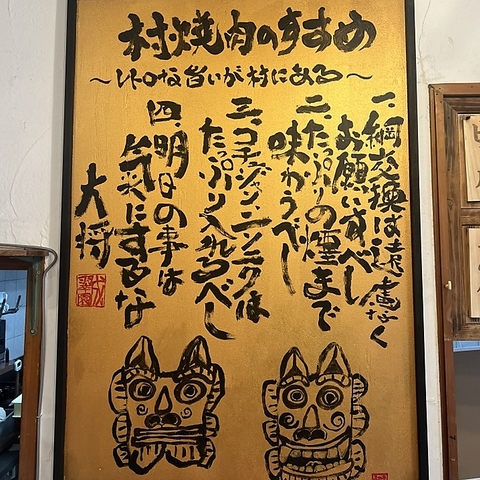 村焼肉のすすめ
〜レトロな旨いが村にある〜
一、網交換は遠慮なく
お願いすべし
二、たっぷりの煙まで
味わうべし
三、コチュジャン・ニンニクは
たっぷり入れるべし
四、明日の事は
気にするな
大将